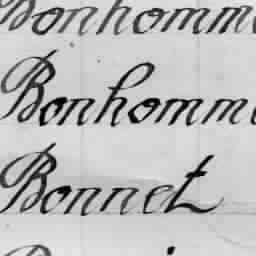 Bonhomme
Bonhomme
Bonnet